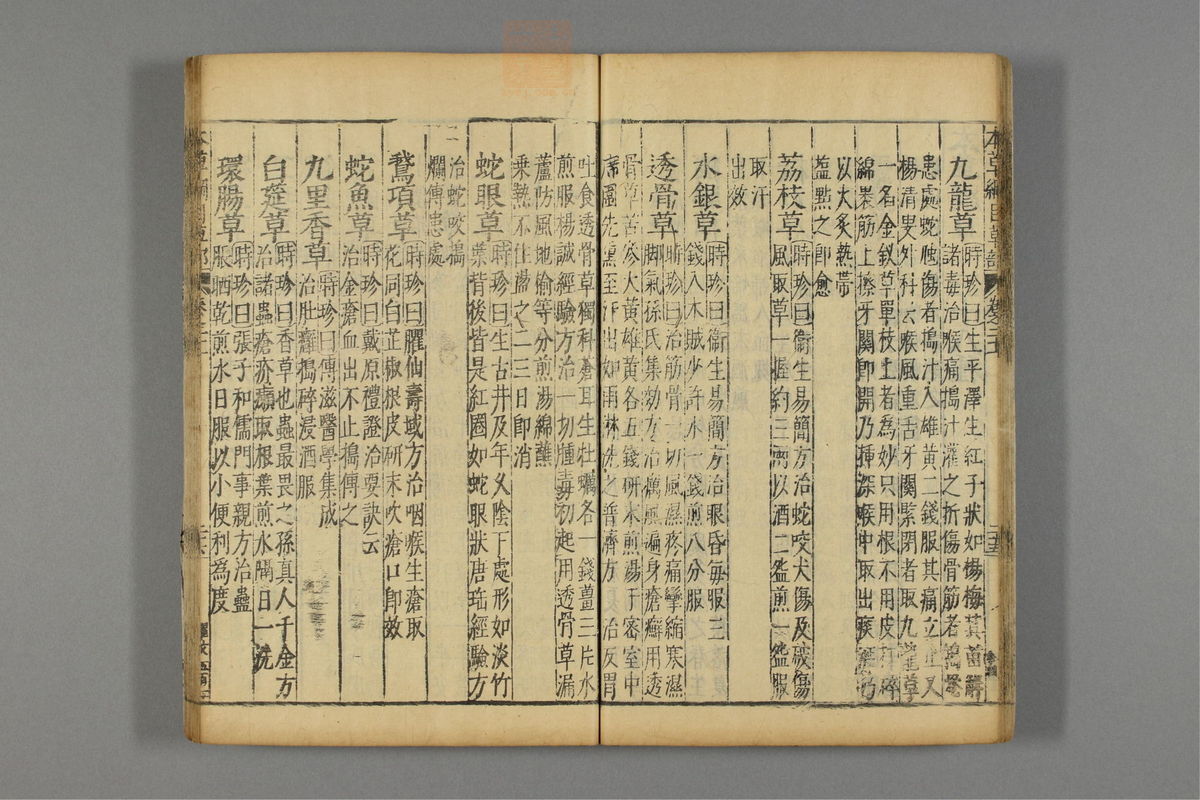 本草綱目草部
九龍草 時珍曰生平澤生紅子狀如楊梅其苗解
諸毒治喉痛搗汁灌之折傷骨筋者搗罨
患處蛇虺傷者搗汁入雄黃二錢服其痛立止又
楊清叟外科云喉風重舌牙關緊閉者取九龍草
一名金釵草單枝上者為妙只用根不用皮打碎
綿裹筯上擦牙關即開乃插深喉中取出痰涎乃
以火炙熱帶
鹽點之即愈
荔枝草 時珍曰衛生易簡方治蛇咬犬傷及破傷
風取草一握約三兩以酒二盌煎一盌服
取汗
出效
水銀草 時珍曰衛生易簡方治眼昏每服三
錢入木賊少許水一錢煎八分服
透骨草 時珍曰治筋骨一切風濕疼痛攣縮寒濕
脚氣孫氏集効方治癘風遍身瘡癬用透
骨草苦參大黃雄黃各五錢研末煎湯于密室中
席圍先熏至汗出如雨淋洗之普濟方治反胃
吐食透骨草獨科蒼耳生牡蠣各一錢薑三片水
煎服楊誠經驗方治一切腫毒初起用透骨草漏
蘆防風地榆等分煎湯綿蘸
乘熱不住盪之二三日即消
蛇眼草 時珍曰生古井及年久陰下處形如淡竹
葉背後皆是紅圈如蛇眼狀唐瑤經驗方
治蛇咬搗
爛傅患處
鵞項草 時珍曰臞仙壽域方治咽喉生瘡取
花同白芷椒根皮研末吹瘡口即效
蛇魚草 時珍曰戴原禮證治要訣云
治金瘡血出不止搗傅之
九里香草 時珍曰傅滋醫學集成
治肚癰搗碎浸酒服
白筳草 時珍曰香草也蟲最畏之孫真人千金方
治諸蟲瘡疥癩取根葉煎水隔日一洗
環腸草 時珍曰張子和儒門事親方治蠱
脹晒乾煎水日服以小便利為度
本草綱目草部